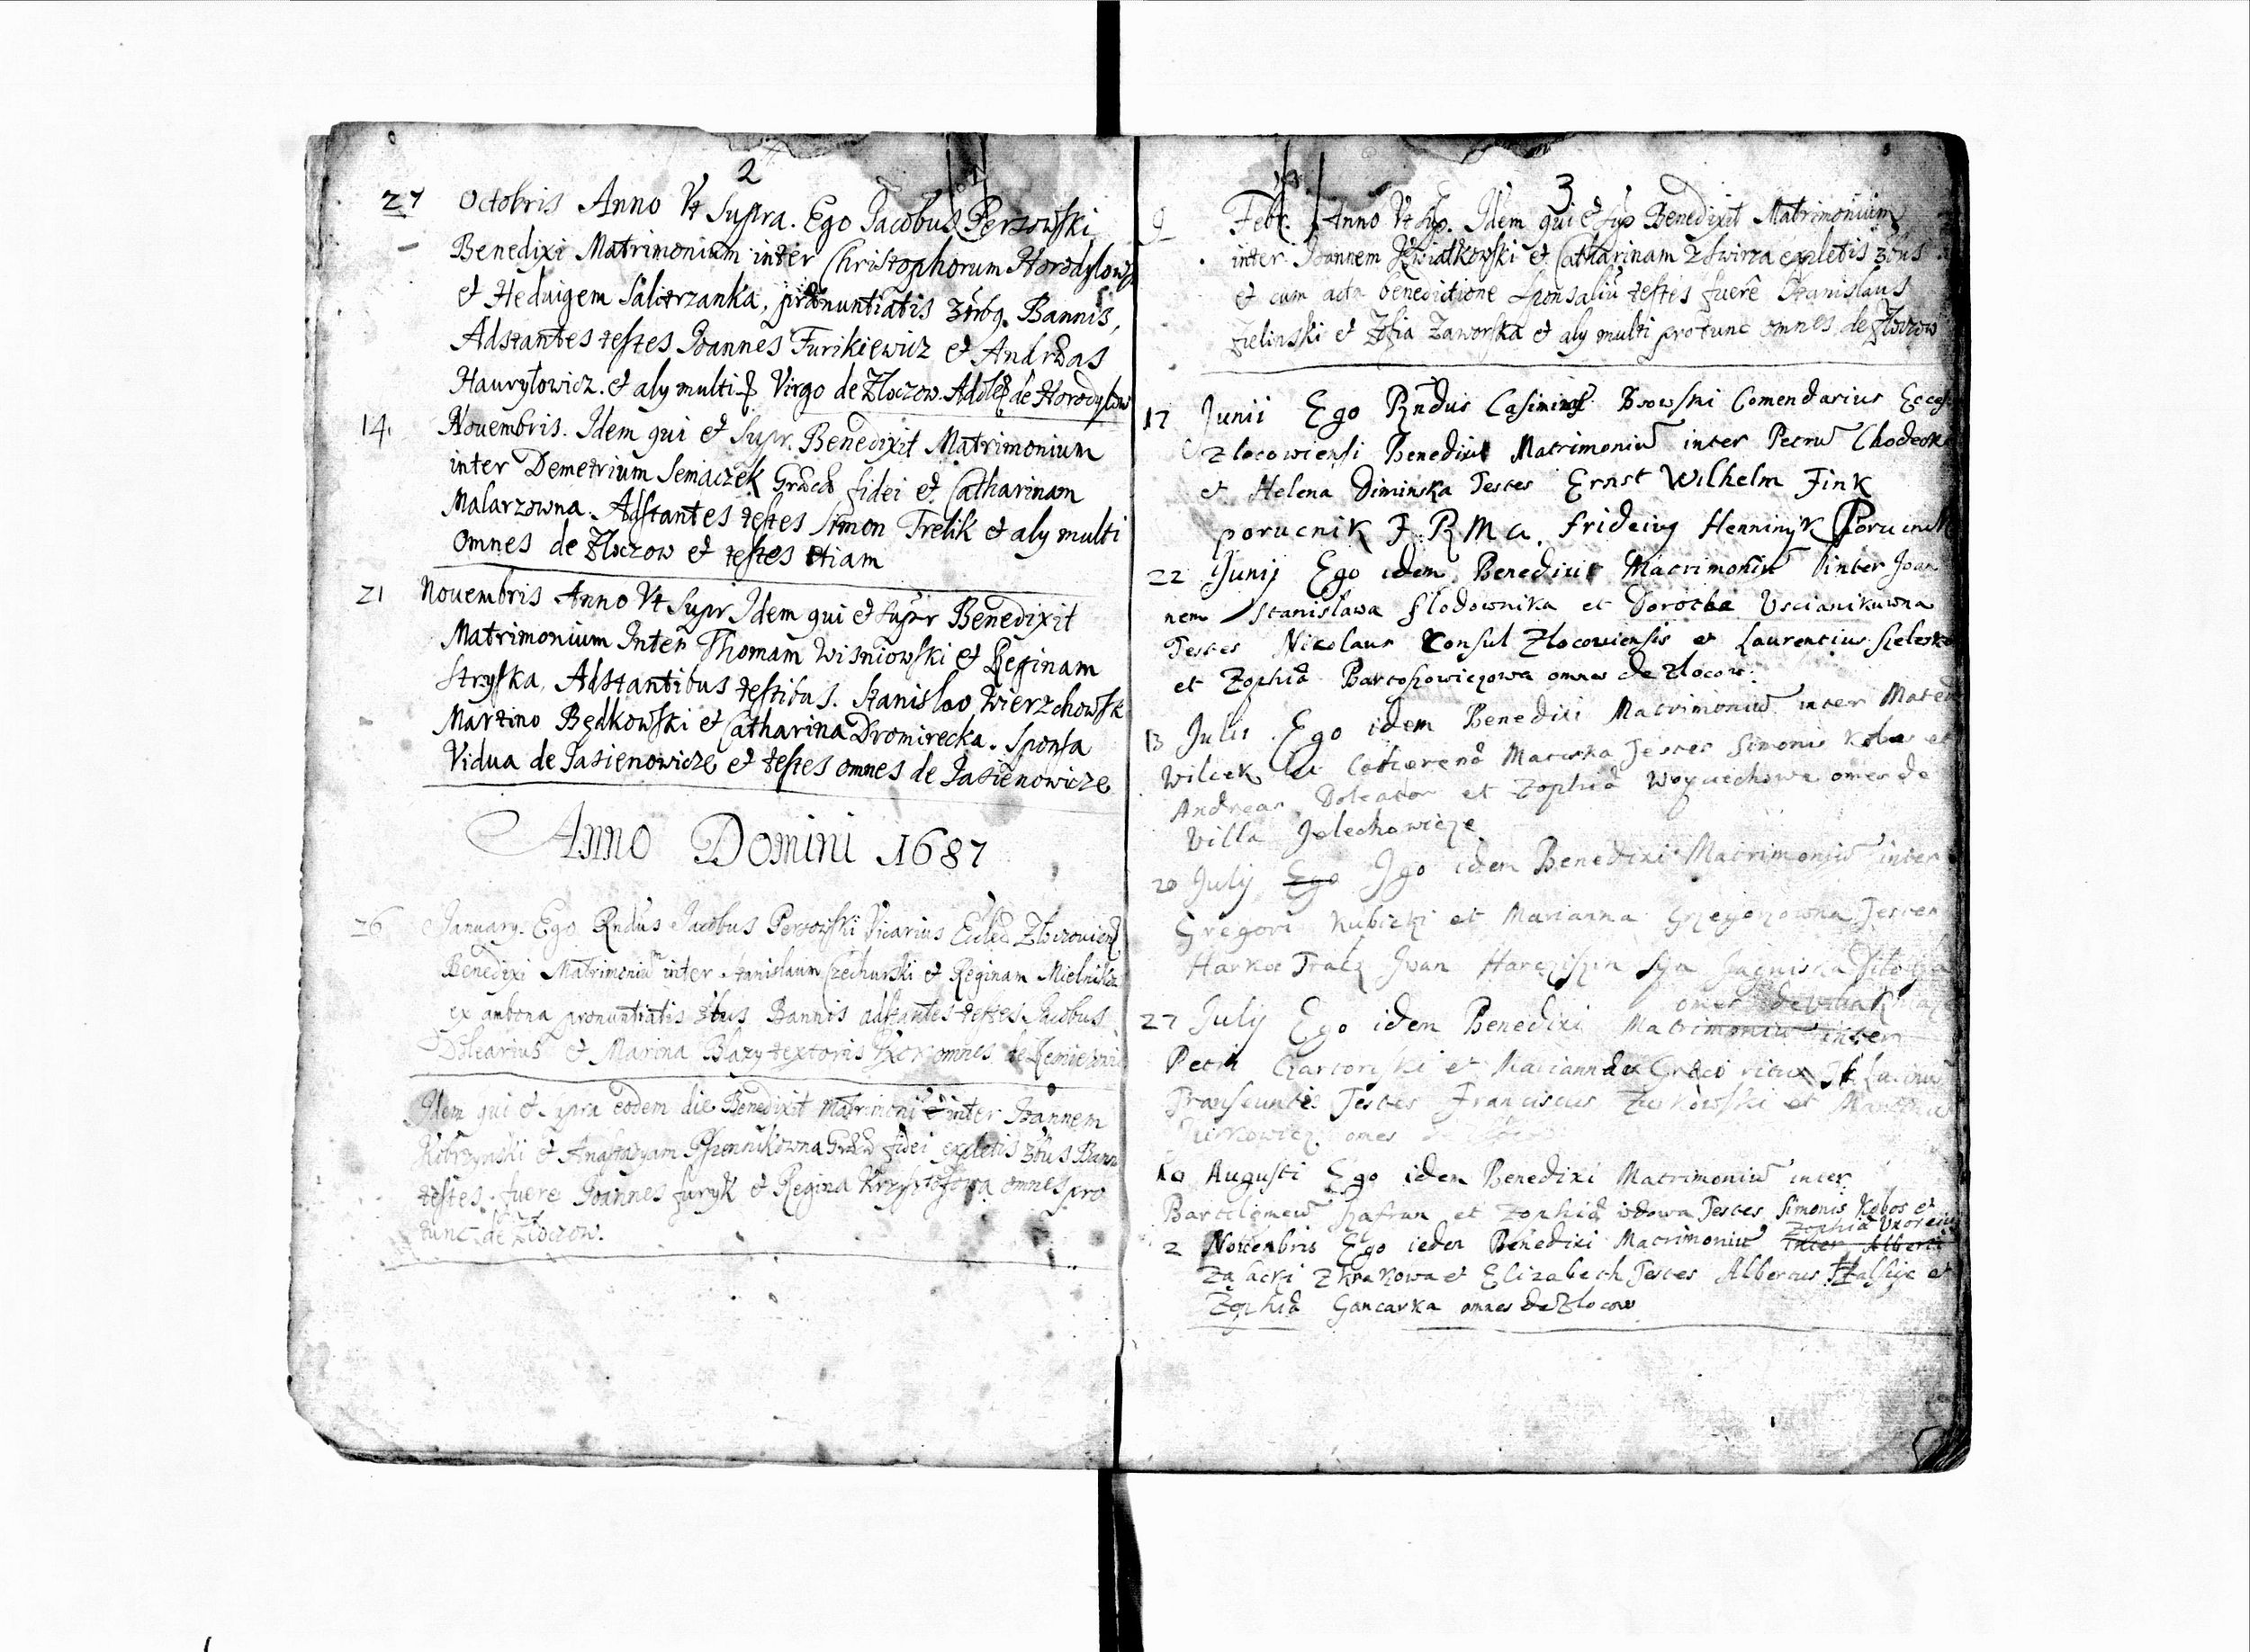 2
27 Octobris Anno Vt Supra. Ego Jacobus Perzowski
Benedixi Matrimonium inter Christophorum Horodylows
et Hedvigem Saletrzanka, pronuntiatis Bannis,
Adstantes testes Joannes Furikiewicz et Andreas
Hauryłowicz. et aly multi Virgo de Złoczow. Adoles de Horodyłow
14. Nouembris. Idem qui et Supr. Benedixit Matrimonium
inter Demetrium Semaczek Græcæ fidei et Catharinam
Malarzowna. Adstantes testes Simon Trelik et aly multi
Omnes de Złoczow et testes etiam
21 Nouembris Anno Vt Supr Idem qui et supr Benedixit
Matrimonium Inter Thomam Wisniowski et Reginam
Stryska, Adstantibus testibus. Stanislao Wierzchowsk
Martino Będkowski et Catharina Dromirecka. Sponsa
Vidua de Jasienowicze et testes omnes de Jasienowicze
Anno Domini 1687
26 January. Ego Rndus Jacobus Perzowski Vicarius Eccles Złoczoviens
Benedixi Matrimoniu inter Stanislaum Czechurski et Reginam Mielnikow
ex ambona pronuntiatis 3bus Bannis adstantes testes Jacobus
Dolearius et Marina Blazy textoris Uxor omnes de
Idem qui et Supra eodem die Benedixit Matrimoni inter Joannem
Kobrzynski et Anastazyam Pszennikowna Græcæ fidei expletis 3bus Bann
testes fuere Joannes furyk et Regina Krzysztofowa omnes pro
tunc de Złoczow.
3
9 Febr. Anno Vt sup. Idem qui et sup Benedixit Matrimonium
inter Joannem Kwiatkowski et Catharinam Zswirza expletis 3bus
et cum acta benedictione Sponsaliu testes fuere Stanislaus
Zielinski et Zofia Zaworska et aly multi protunc omnes de Złoczow
17 Junii Ego Rndus Casimirus Comendarius
Zlocowiensi Benedixi Matrimoniu inter Petru Chodeck
et Helena Diminska Testes Ernst Wilhelm Fink
porucnik J. R M a. frideing Henninyk Porucnik
22 Junij Ego idem Benedixit Matrimoniu inter Joan
nem Stanislawa flodownika et Dorothea Uscianikuwna
Testes Nicolaus Consul Zlocowiensis et Laurentius
et Zophia Bartoszowiczowa omnes de Zlocow.
13 Julii. Ego idem Benedixi Matrimoniu inter
Wilcek et Testes Simonis et
Andreas Doleator et Zophia Woyciechowa omes de
Villa Jelechowicze
20 July Ego Jgo idem Benedixi Matrimoniu inter
Gregori Kubicki et Marianna Grzegorzowna Testes
Tracz Iwan
omes
27 July Ego idem Benedixi Matrimoniu inter
Petri et Marianna Græci ritus
Transeuntes Testes Franciscus Zurkowski et
omes
10 Augusti Ego idem Benedixi Matrimoniu inter
Bartelomeu Szafran et Zophia wdowa Testes Simonis Kobos et
Zophia Uxor eius
2 Nouenbris Ego iedem Benedixi Matrimoniu inter Alberti
Zalacki Z krakowa et Elizabeth Testes Albertus et
Zophia Gancarka omnes de Zlocow